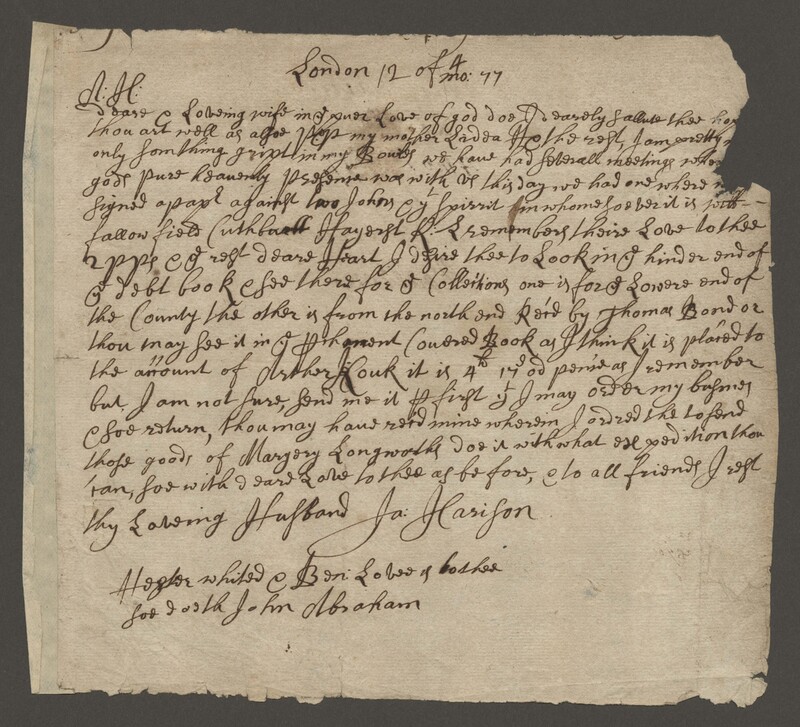 London 12 of 4 mo: 77
A: H:
deare & Loveing wife in ye pure Love of god doe I dearely sallute thee
thou art well as alsoe my mother Lidea & the rest, I am pretty
only somthing gript in my Bowels we have had severall meetings
gods pure heavenly presense was with us this day we had one where
signed a papr against two Johns & ye spirrit in whome soever it is
fallowfield Cuthburt Hayerst remembers theire Love to thee
& ye rest deare Heart I desire thee to Look in ye hinder end of
ye debt book & see there for ye Collections one is for ye Lowere end of
the County the other is from the north end Re'd by Thomas Bond or
thou may see it in ye pchment Covered Book as I think it is placed to
the account of it is 4 17 od pence as I remember
but I am not sure, send me it p first yt I may order my busines
& soe return, thou may have re'd mine wherein I ordred the to send
those goods of Margery Longworths doe it with what expedition thou
can, soe with deare Love to thee as before, & to all friends I rest
thy Loveing Husband Ja: Harison
Hester whited & Benj Love is to thee
soe doeth John Abraham